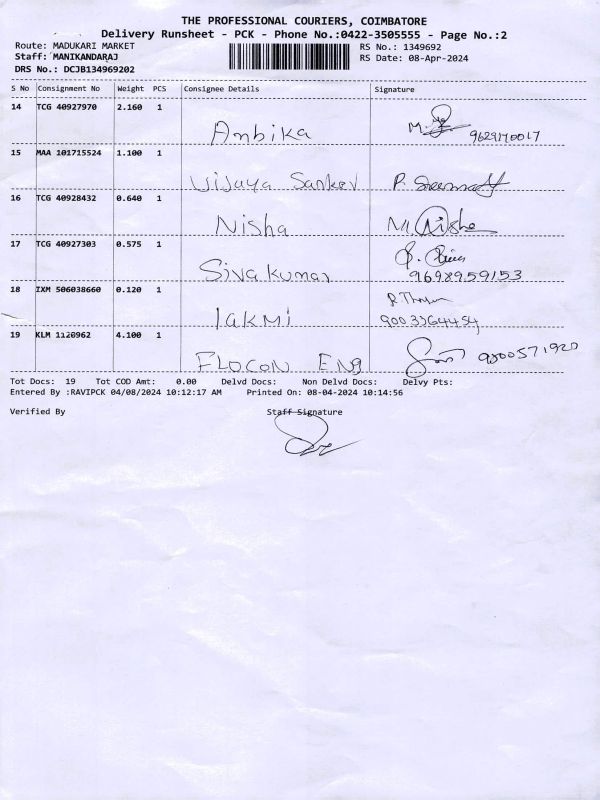 THE PROFESSIONAL COURIERS, COIMBATORE
Delivery Runsheet - PCK - Phone No.:0422-3505555 - Page No.:2
Route: MADUKARI MARKET
RS No.: 1349692
Staff: MANIKANDARAJ
RS Date: 08-Apr-2024
DRS No.: DCJB134969202
S No Consignment No Weight PCS Consignee Details Signature
14 TCG 40927970 2.160 1
Ambika
15 MAA 101715524 1.100 1
Vijaya Sankev P.
16 TCG 40928432 0.640 1
Nisha M. Nisha
17 TCG 40927303 0.575 1
Sivakumar 9698959153
18 IXM 506038660 0.120 1
lakmi 9003364454
19 KLM 1120962 4.100 1
FLOCON ENg
Tot Docs: 19 Tot COD Amt: 0.00 Delvd Docs: Non Delvd Docs: Delvy Pts:
Entered By :RAVIPCK 04/08/2024 10:12:17 AM Printed On: 08-04-2024 10:14:56
Verified By Staff Signature